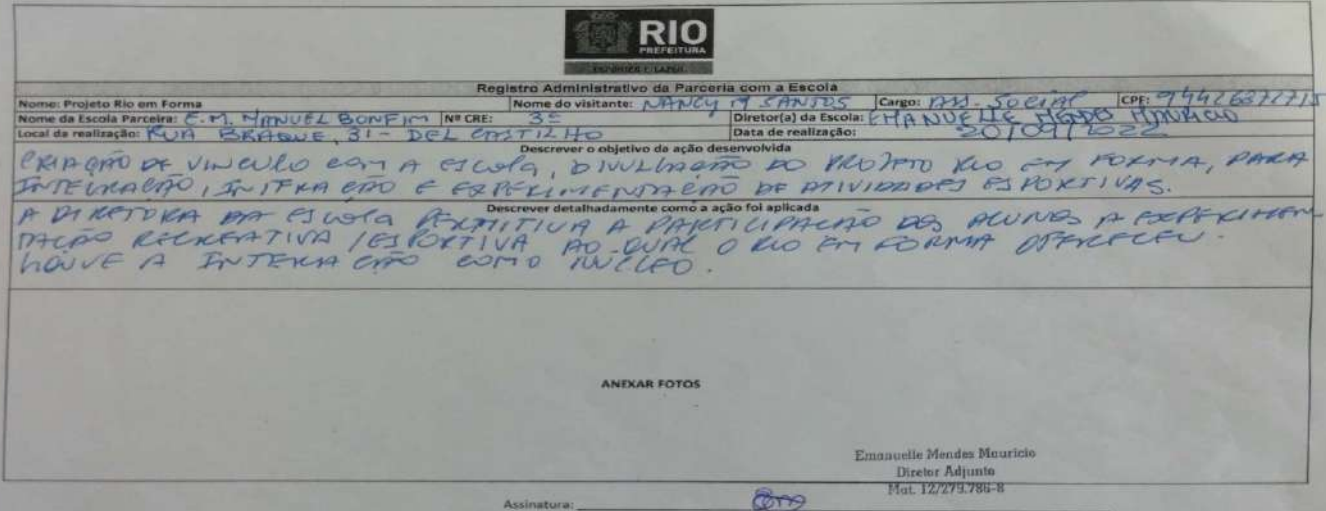 RIO
PREFEITURA
ESPORTES E LAZER
Registro Administrativo da Parceria com a Escola
Nome: Projeto Rio em Forma Nome do visitante: NANCY M SANTOS Cargo: ASS. SOCIAL CPF:
Nome da Escola Parceira: E.M. MANUEL BONFIM Nº CRE: 3ª Diretor(a) da Escola: EMANUELLE MENDES MAURICIO
Local da realização: RUA BRAQUE, 31 - DEL CASTILHO Data de realização: 20/09/2022
Descrever o objetivo da ação desenvolvida
CRIAÇÃO DE VINCULO COM A ESCOLA, DIVULGAÇÃO DO PROJETO RIO EM FORMA, PARA
INTEGRAÇÃO, INTERAÇÃO E EXPERIMENTAÇÃO DE ATIVIDADES ESPORTIVAS.
Descrever detalhadamente como a ação foi aplicada
A DIRETORA DA ESCOLA A PARTICIPAÇÃO DOS ALUNOS A EXPERIMEN
TAÇÃO RECREATIVA / ESPORTIVA AO QUAL O RIO EM FORMA OFERECEU.
HOUVE A INTERAÇÃO COM O NUCLEO.
ANEXAR FOTOS
Emanuelle Mendes Mauricio
Diretor Adjunto
Mat. 12/279.786-8
Assinatura: